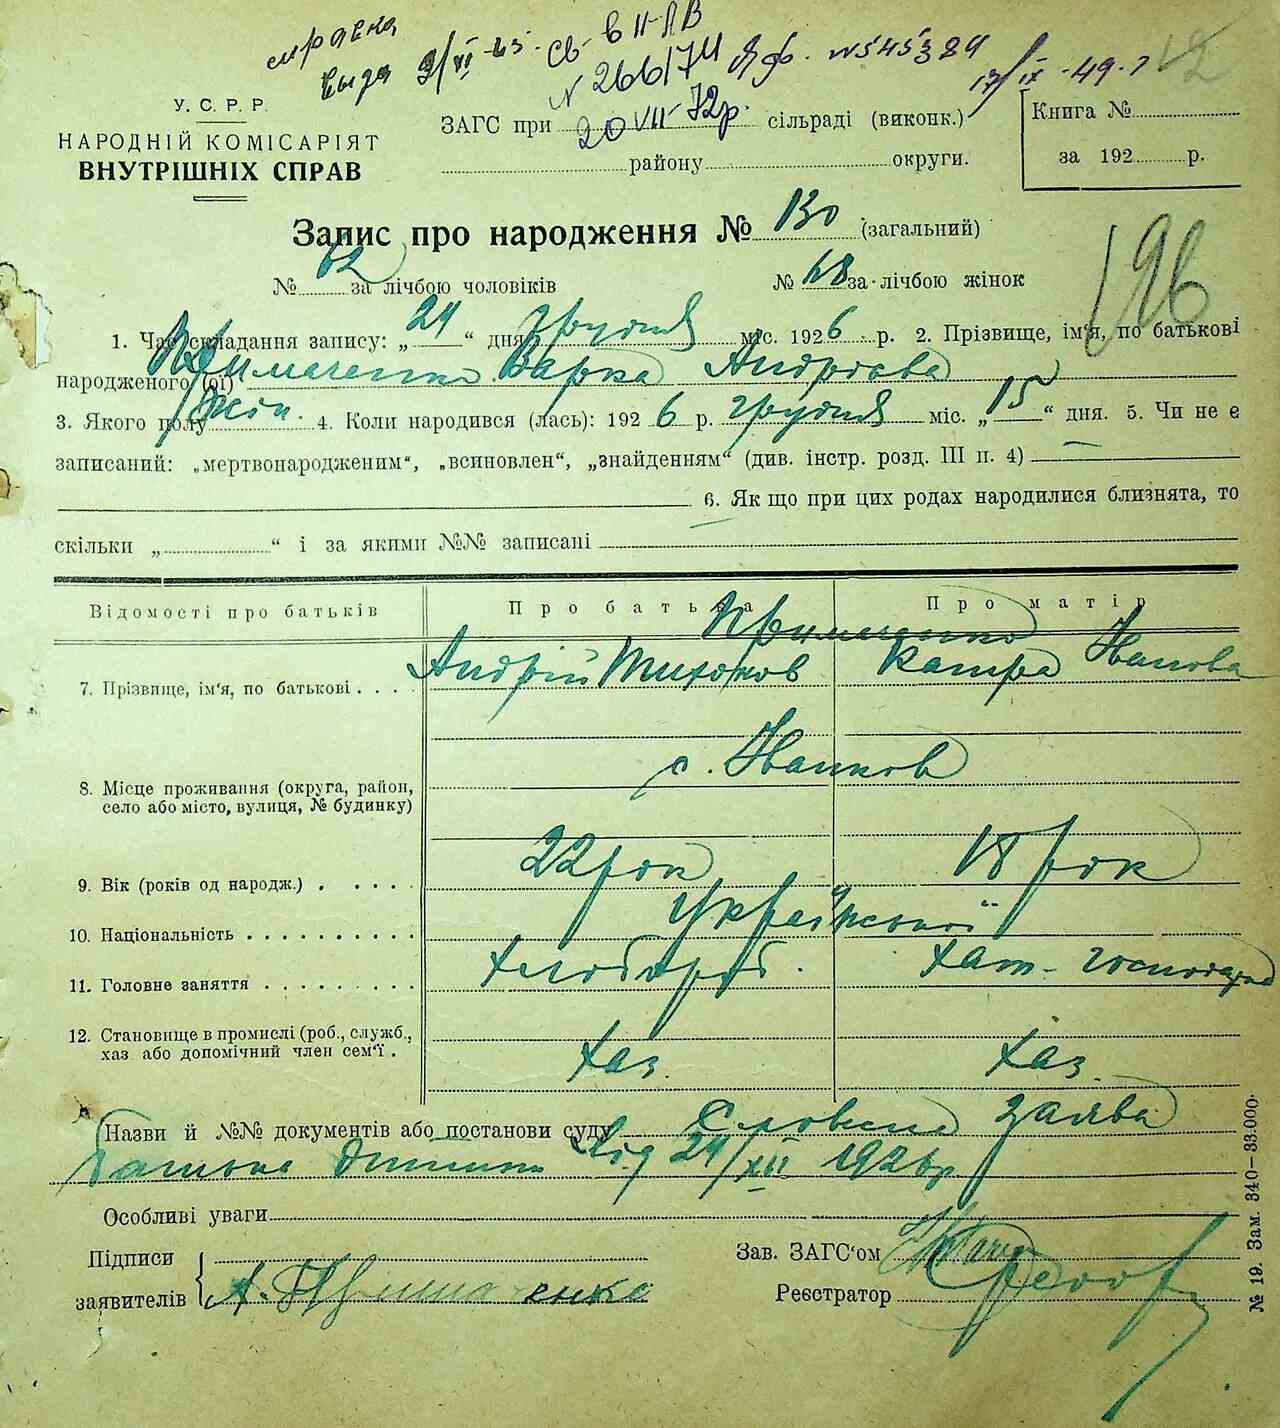 справка
выда 9/VI-45. Св. в II-ЛВ
N 266174 Дуб. N545389
20 VII-72р. 17/IX-49.г
У. С. Р. Р.
НАРОДНІЙ КОМІСАРІЯТ
ВНУТРІШНІХ СПРАВ
ЗАГС при сільраді (виконк.)
району округи.
Книга №
за 192 р.
Запис про народження № 130 (загальний)
№ 62 за лічбою чоловіків № 68 за лічбою жінок
196
1. Час складання запису: „24“ дня грудня міс. 1926 р. 2. Прізвище, ім'я, по батькові
народженого (ої) Примаченко Варка Андрієва
3. Якого полу жін. 4. Коли народився (лась): 1926 р. грудня міс. „15“ дня. 5. Чи не є
записаний: „мертвонародженим“, „всиновлен“, „знайденням“ (див. інстр. розд. III п. 4) —
6. Як що при цих родах народилися близнята, то
скільки „ “ і за якими №№ записані
Відомості про батьків Про батька Про матір
Примаченко
7. Прізвище, ім'я, по батькові . . . . Андрій Тихонов Катра Іванова
8. Місце проживання (округа, район,
село або місто, вулиця, № будинку) с. Іванков
9. Вік (років од народж.) . . . . . 22 рок 18 рок
10. Національність . . . . . . . . . . Української
11. Головне заняття . . . . . . . . . хлібороб. хат-господарка
12. Становище в промислі (роб., служб.,
хаз або допомічний член сем'ї . хаз. хаз.
Назви й №№ документів або постанови суду Словесна заява
батька дитини від 24/XII 1926р.
Особливі уваги
Підписи
заявителів А. Примаченко
Зав. ЗАГС'ом
Реєстратор
№ 19. Зам. 340—33.000.